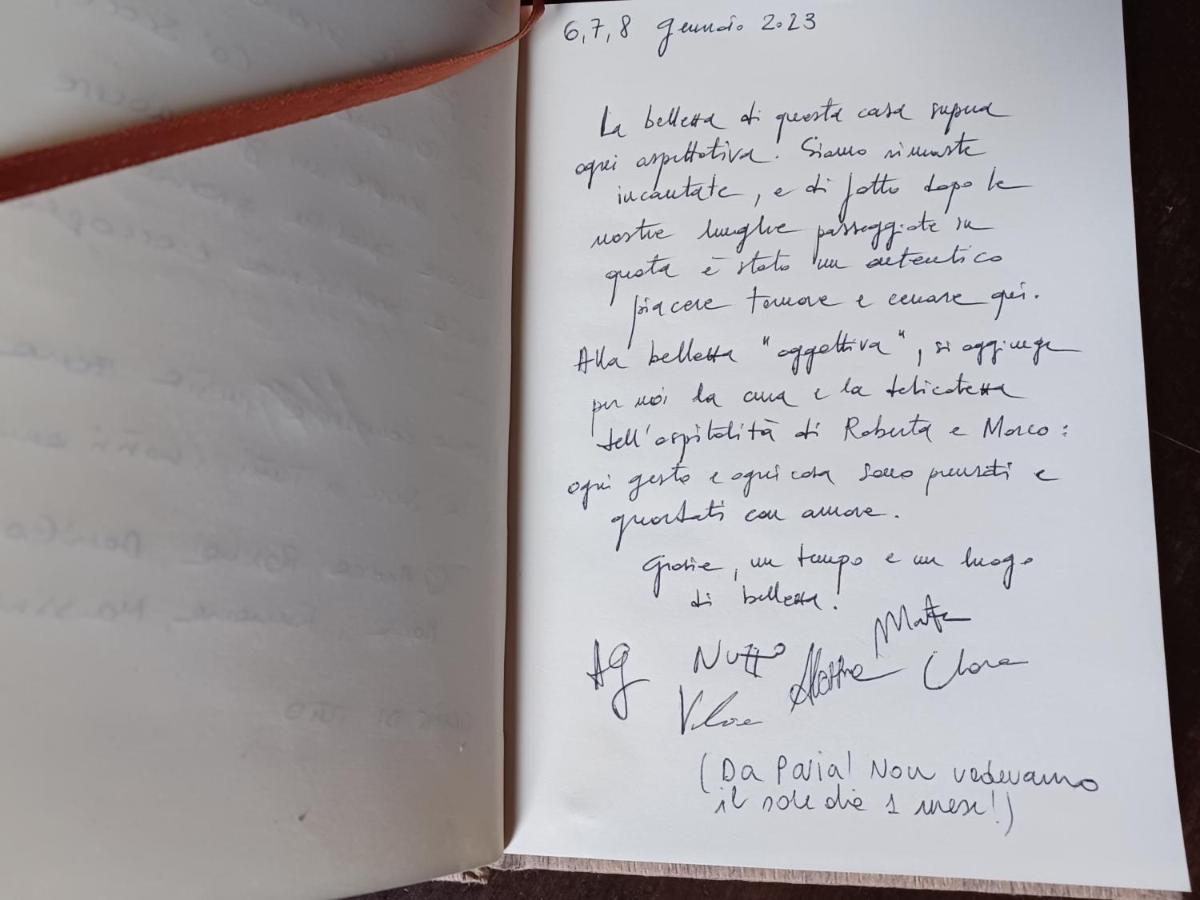 6, 7, 8 gennaio 2023
La bellezza di questa casa supera
ogni aspettativa. Siamo rimaste
incantate, e di fatto dopo le
nostre lunghe passeggiate in
quota è stato un autentico
piacere tornare e cenare qui.
Alla bellezza "oggettiva", si aggiunge
per noi la cura e la delicatezza
dell'ospitalità di Roberta e Marco:
ogni gesto e ogni cosa sono pensati e
guardati con amore.
Grazie, un tempo e un luogo
di bellezza.
AG Nuzzo
Chiara
(Da Pavia! Non vedevamo
il sole da 1 mese!)